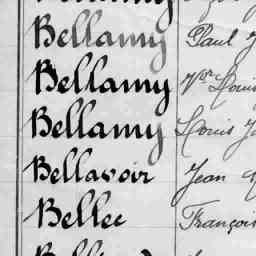 Bellamy Paul J
Bellamy Vve Louis
Bellamy Louis J
Bellavoir Jean
Bellec François